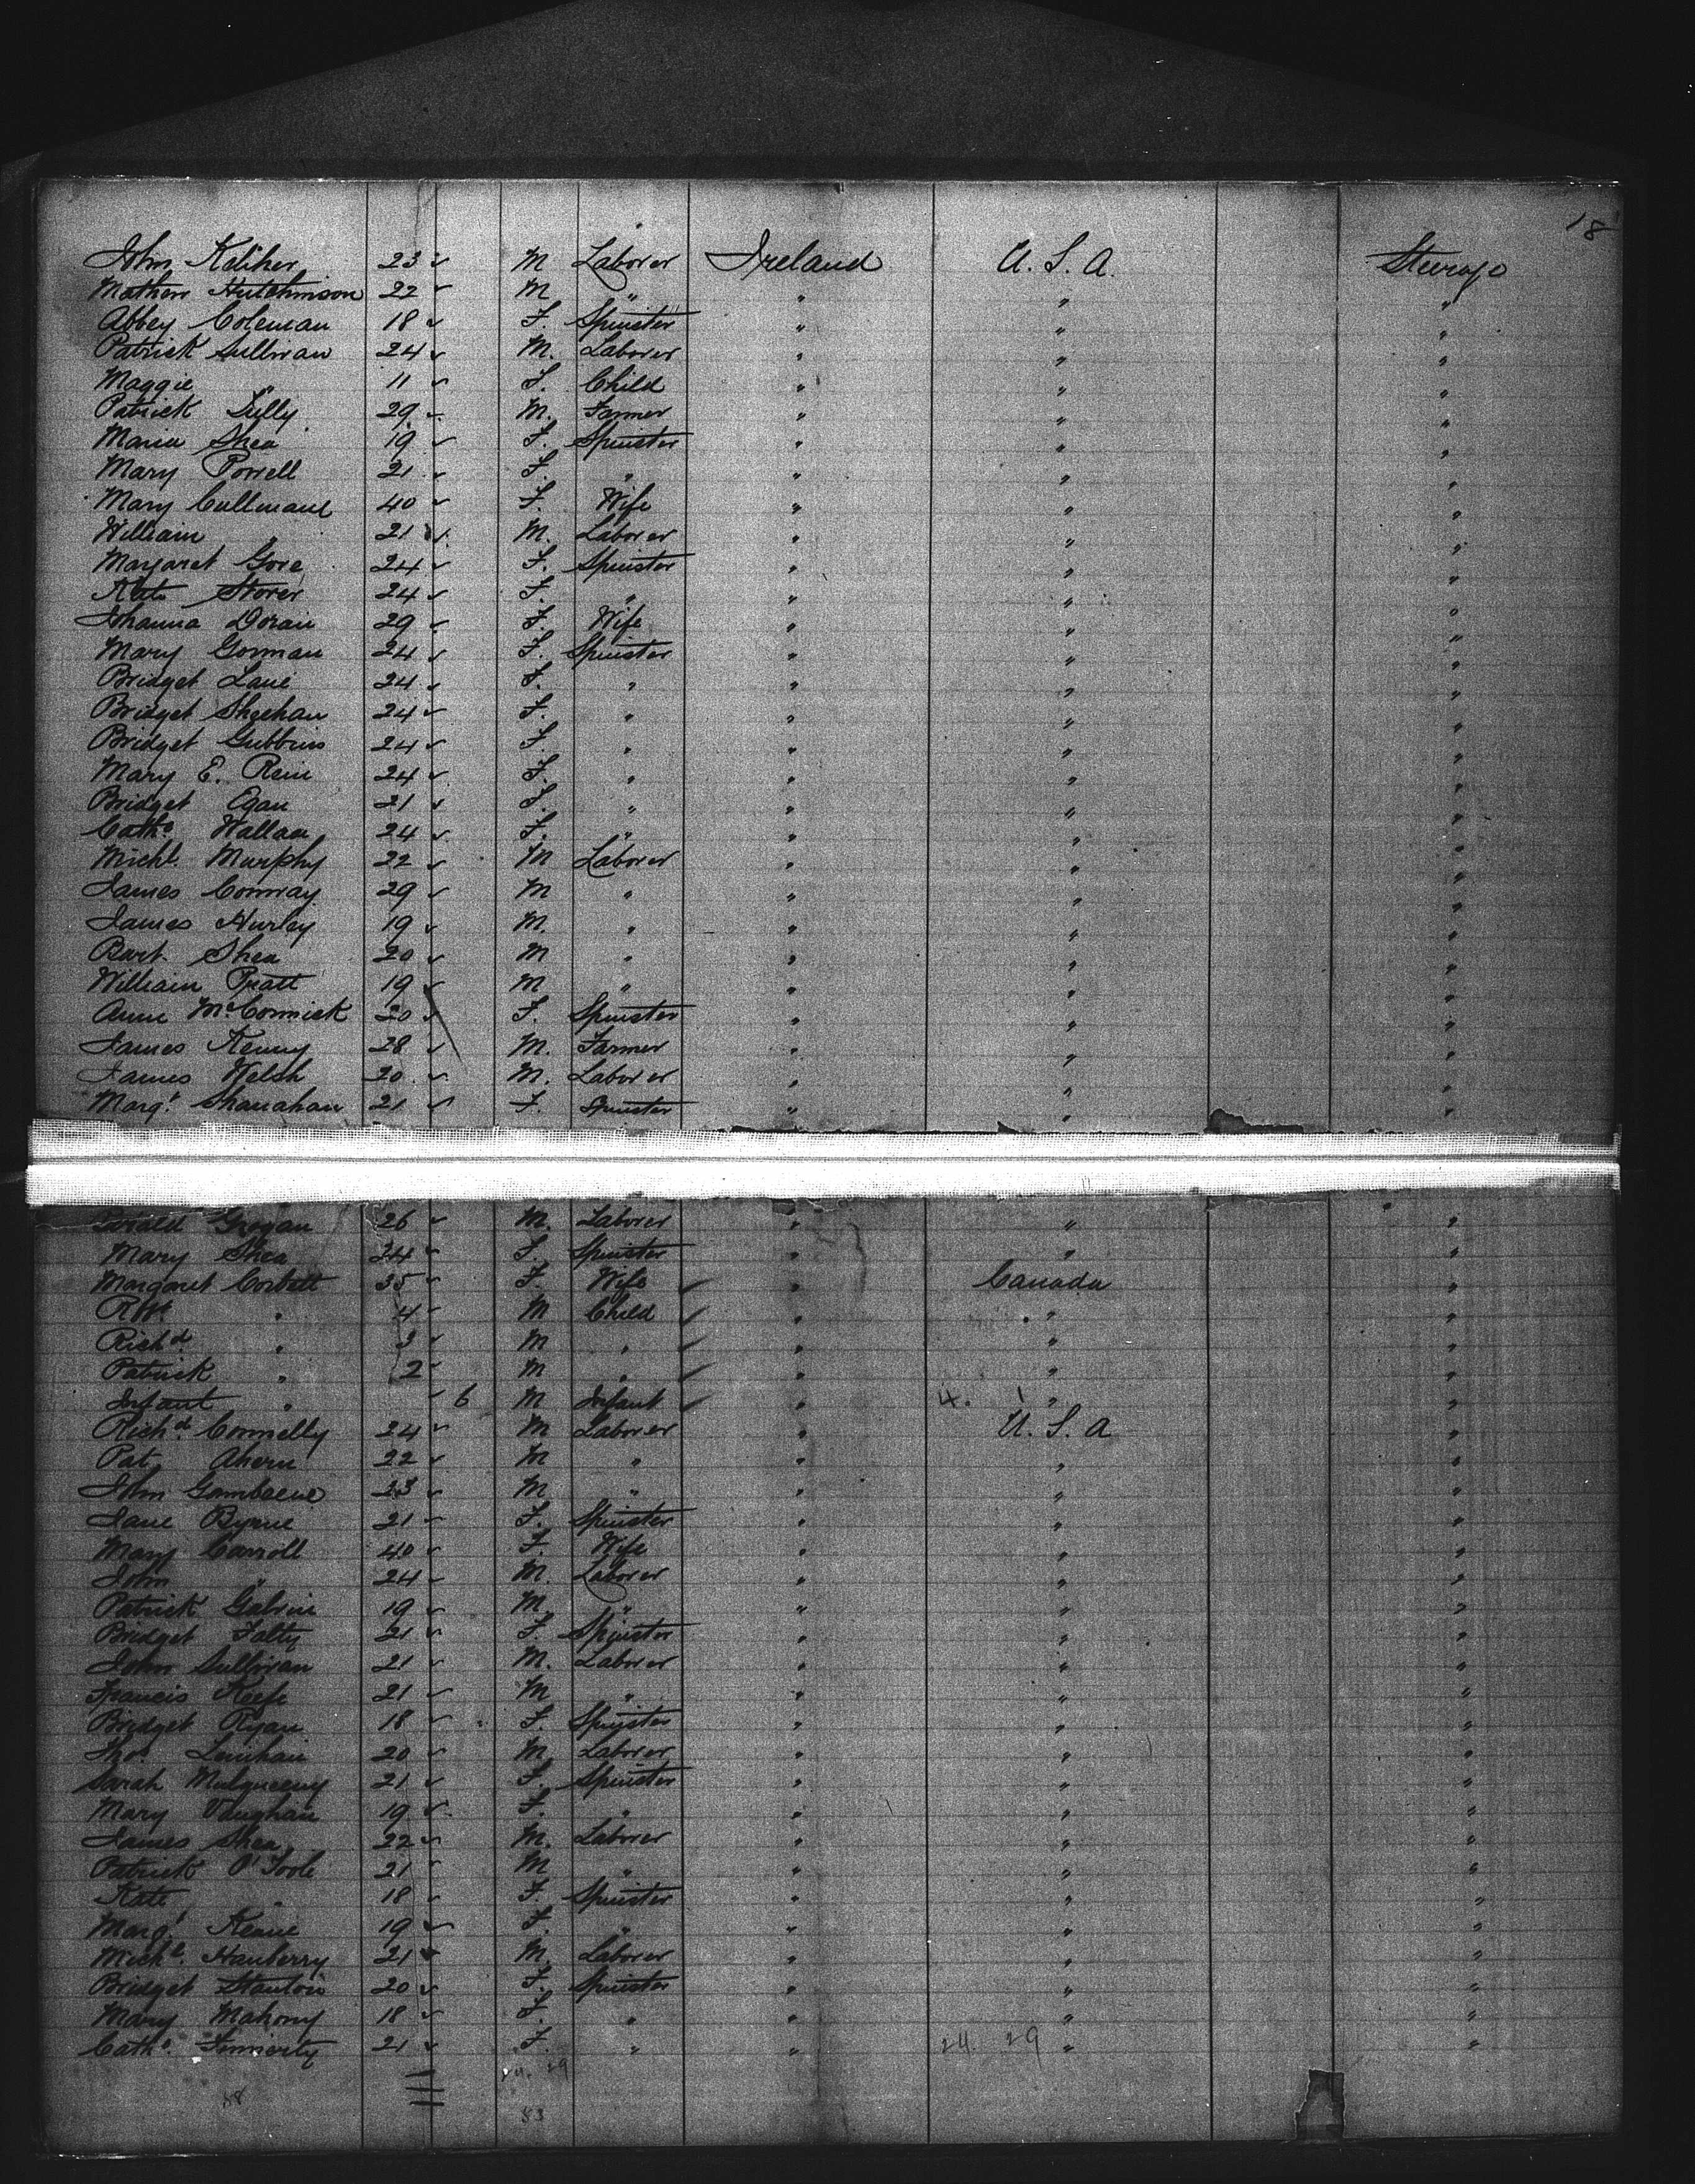 18
John Keliher 23 M Laborer Ireland U. S. A. Steerage
Mathew Hutchinson 22 M " " " "
Abbey Coleman 18 F. Spinster " " "
Patrick Sullivan 24 M. Laborer " " "
Maggie " 11 F. Child " " "
Patrick Lilly 29 M. Farmer " " "
Maria Shea 19 F. Spinster " " "
Mary Powell 21 F. " " " "
Mary Cullinane 40 F. Wife " " "
William " 21 M. Laborer " " "
Margaret Gore 24 F. Spinster " " "
Kate Storer 24 F. " " " "
Johanna Doran 29 F. Wife " " "
Mary Gorman 24 F. Spinster " " "
Bridget Lane 24 F. " " " "
Bridget Sheehan 24 F. " " " "
Bridget Gubbins 24 F. " " " "
Mary E. Rein 24 F. " " " "
Bridget Egan 21 F. " " " "
Cathe. Wallace 24 F. " " " "
Michl. Murphy 22 M Laborer " " "
James Conway 29 M " " " "
James Hurley 19 M. " " " "
Bart. Shea 20 M " " " "
William Pratt 19 M " " " "
Anne McCormick 20 F. Spinster " " "
James Kenny 28 M. Farmer " " "
James Welsh 20 M. Laborer " " "
Margt. Shanahan 21 F. Spinster " " "
Grogan 26 M. Laborer " " "
Mary Shea 24 F. Spinster " " "
Margaret Corbett 35 F. Wife " Canada "
Robt. " 4 M Child " " "
Richd. " 3 M " " " "
Patrick " 2 M " " " "
Infant " 6 M Infant " 4. " "
Richd. Connelly 24 M Laborer " U. S. A "
Pat Ahern 22 M " " " "
John 23 M " " " "
Jane Byrne 21 F. Spinster " " "
Mary Carroll 40 F. Wife " " "
John " 24 M. Laborer " " "
Patrick Galvin 19 M " " " "
Bridget Falty 21 F. Spinster " " "
John Sullivan 21 M. Laborer " " "
Francis Keefe 21 M " " " "
Bridget Ryan 18 F. Spinster " " "
Thos. Lenihan 20 M. Laborer " " "
Sarah Mulqueeny 21 F. Spinster " " "
Mary Vaughan 19 F. " " " "
James Shea 22 M. Laborer " " "
Patrick O'Toole 21 M " " " "
Kate " 18 F. Spinster " " "
Margt. Keane 19 F. " " " "
Michl. Hanberry 21 M. Laborer " " "
Bridget Stanton 20 F. Spinster " " "
Mary Mahony 18 F. " " " "
Cathe. Finnerty 21 F. " " 24. 29 " "
24. 29
58 53